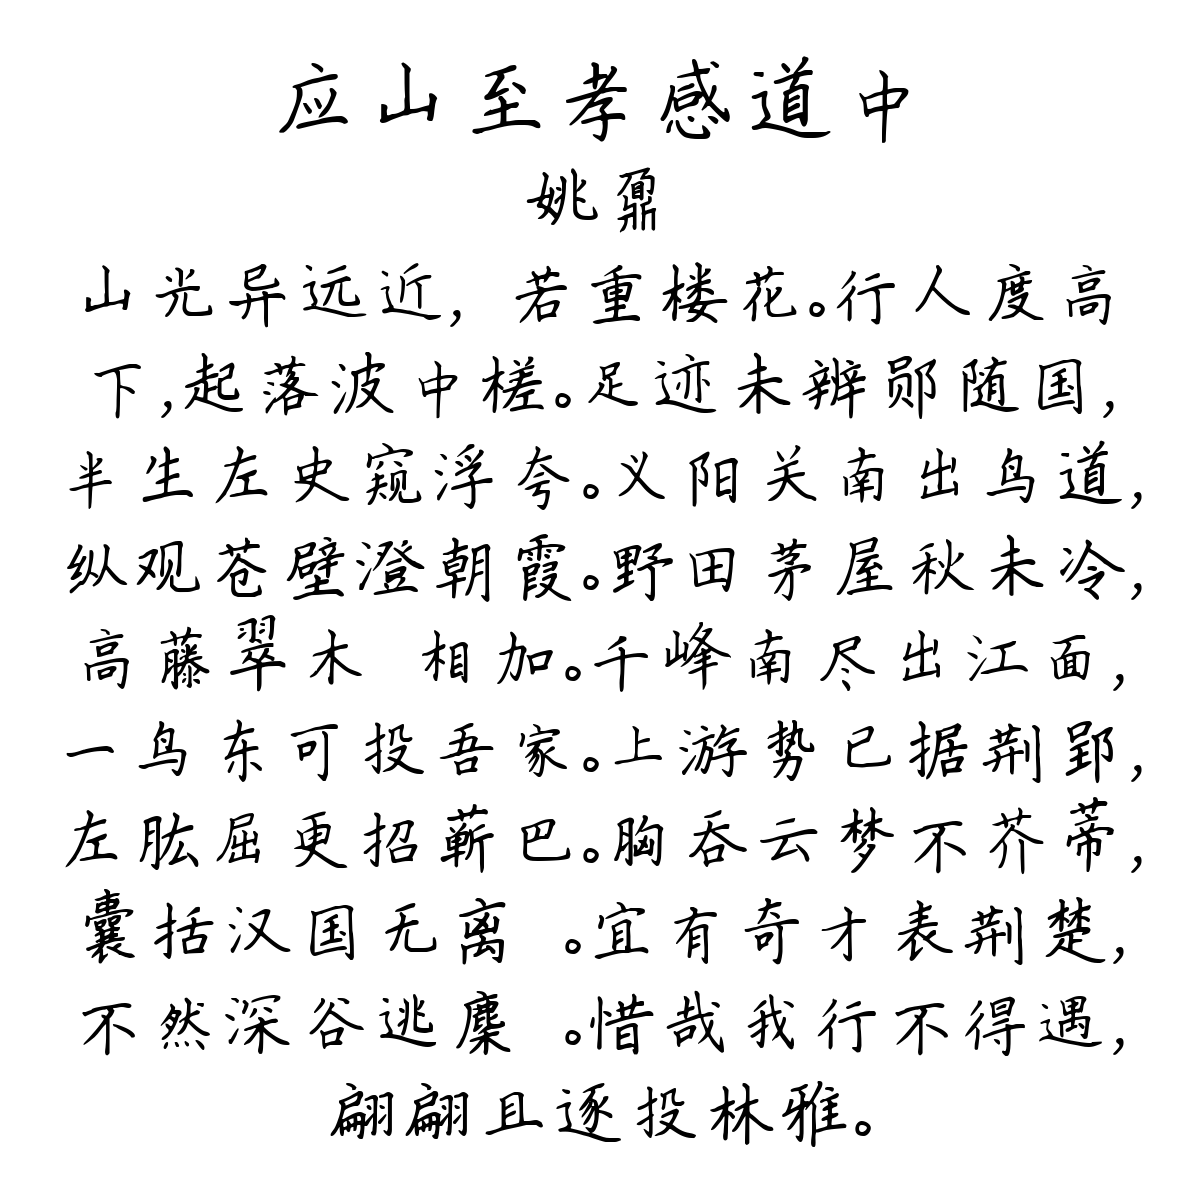 应山至孝感道中
姚鼐
山光异远近，若重楼花。行人度高
下，起落波中槎。足迹未辨郧随国，
半生左史窥浮夸。义阳关南出鸟道，
纵观苍壁澄朝霞。野田茅屋秋未冷，
高藤翠木 相加。千峰南尽出江面，
一鸟东可投吾家。上游势已据荆郢，
左肱屈更招蕲巴。胸吞云梦不芥蒂，
囊括汉国无离 。宜有奇才表荆楚，
不然深谷逃麇 。惜哉我行不得遇，
翩翩且逐投林雅。